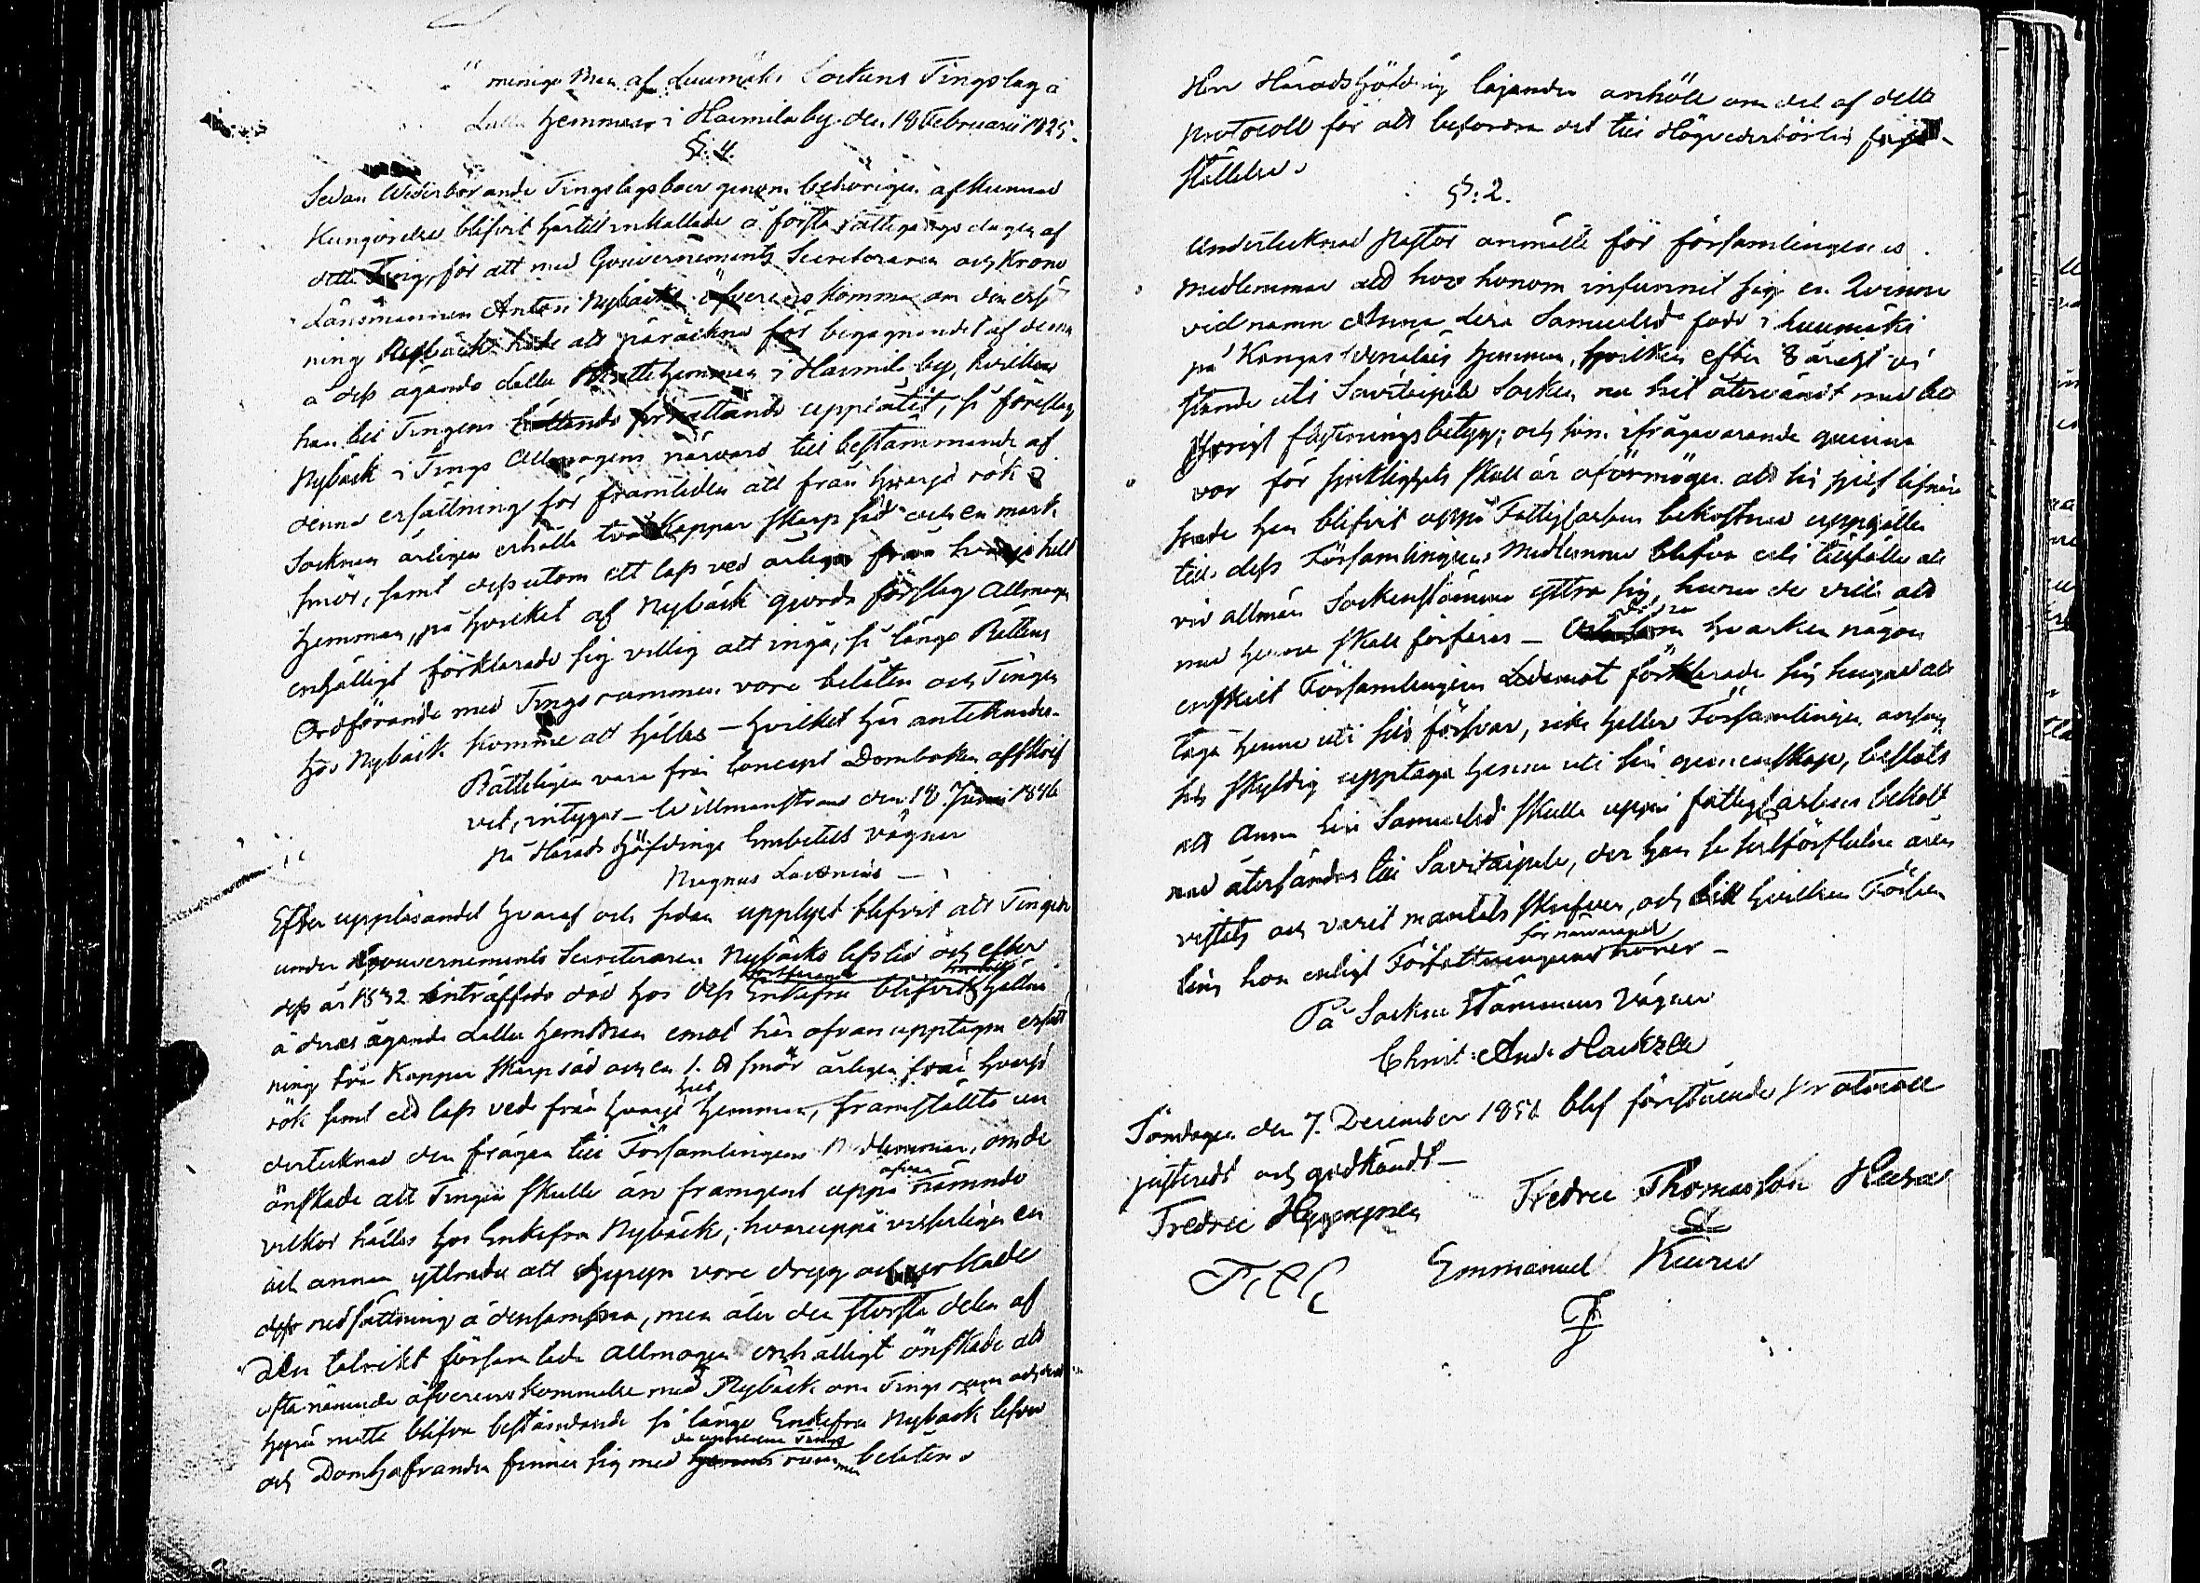 menige Man af Luumäki Sockens Tingslag å
Lalla Hemman i Haimila by den 18 Februarii 1825.
§. 4.
Sedan Wederbörande Tingslagsboer genom behörigen afkunnad
Kungörelse blifvit härtill inkallade å första rättegångs dagen af
detta Ting, för att med Gouvernements Secreteraren och Krono
Länsmannen Anton Nybäck öfverenskomma om den ersätt
ning Nybäck hade att påräkna för begagnandet af denna
å dess ägande Lalla hemman i Haimila by, hvilken
han till Tingens hållande upplåtit, så föreslog
Nybäck i Tings Allmogens närvaro till bestämmande af
denna ersättning för framtiden att från hvarje rök i
Socknen årligen erhålla två Kappar skarp säd och en mark
smör, samt dessutom ett lass ved årligen från hvarje helt
Hemman, på hvilket af Nybäck gjorde förslag Allmogen
enhälligt förklarade sig villig att ingå, så länge Rättens
Ordförande med Tingsrummen vore belåten och Tingen
hos Nybäck komme att hållas – hvilket här antecknades.
Rätteligen vara från Concept Domboken afskrif
vet, intygar – Willmanstrand den 18 Junii 1846
på Härads Höfdinge Embetets vägnar
Magnus Lavonius –
Efter uppläsandet hvaraf och sedan upplyst blifvit att Tingen
under Gouvernements Secreteraren Nybäcks lifstid och efter
dess år 1832 inträffade död hos dess Enkefru blifvit hållne
å deras ägande Lalla hemman emot här ofvan upptagen ersätt
ning två Kappar skarp säd och en smör årligen från hvarje
rök samt ett lass ved från hvarje helt hemman, framställte un
dertecknad den frågan till Församlingens Medlemmar, om de
önskade att Tingen skulle än framgent uppå ofvan nämnde
vilkor hållas hos Enkefru Nybäck, hvaruppå visserligen en
och annan yttrade att hyran vore dryg och yrkade
dess nedsättning å densamma, men åter den största delen af
den talrikt församlade Allmogen enhälligt önskade att
ofta nämnde öfverenskommelse med Nybäck om Tings rum och
hyra måtte blifva beståndande så länge Enkefru Nybäck lefver
och Domhafvanden finner sig med de upplåtna Tings rummen belåten.
Herr Häradshöfding Cajander anhöll om del af detta
protocoll för att befordra det till Högvederbörlig fast-
ställelse.
§. 2.
Undertecknad Pastor anmälte för församlingens
medlemmar att hos honom infunnit sig en Qvinna
vid namn Anna Lisa Samuelsd. född i Luumäki
på Kangas Venäläis hemman, hvilken efter 8 årigt vi
stande uti Savitaipale Socken nu hit återvändt med be
hörigt flyttningsbetyg; och som ifrågavarande qvinna
var för sjuklighets skull är oförmögen att sig sjelf lifnära
hade hon blifvit uppå Fattigcassans bekostnad uppehållen
till dess Församlingens Medlemmar blefve i tillfälle att
vid allmän Sockenstämma yttra sig, huru de ville att
med henne skall förfaras – hvarken någon
enskilt Församlingens Ledamot förklarade sig hugad att
taga henne uti sitt försvar, icke heller Församlingen ansåg
sig skyldig upptaga henne uti sin gemenskap, beslöts
att Anna Lisa Samuelsd. skulle uppå fattigcassans bekost
nad återsändas till Savitaipale, der hon de sedlförflutne åren
vistats och varit mantals skrifven, och till hvilken Försam
ling hon enligt Författningarne för närvarande hörer –
På Socknestämmans Vägnar
Christ: And: Hackzell
Söndagen den 7. December 1851 blef förestående protocoll
justeradt och godkändt –
Fredric Hyyrynen Fredric Thomasson Husu
Emmanuel Kiuru